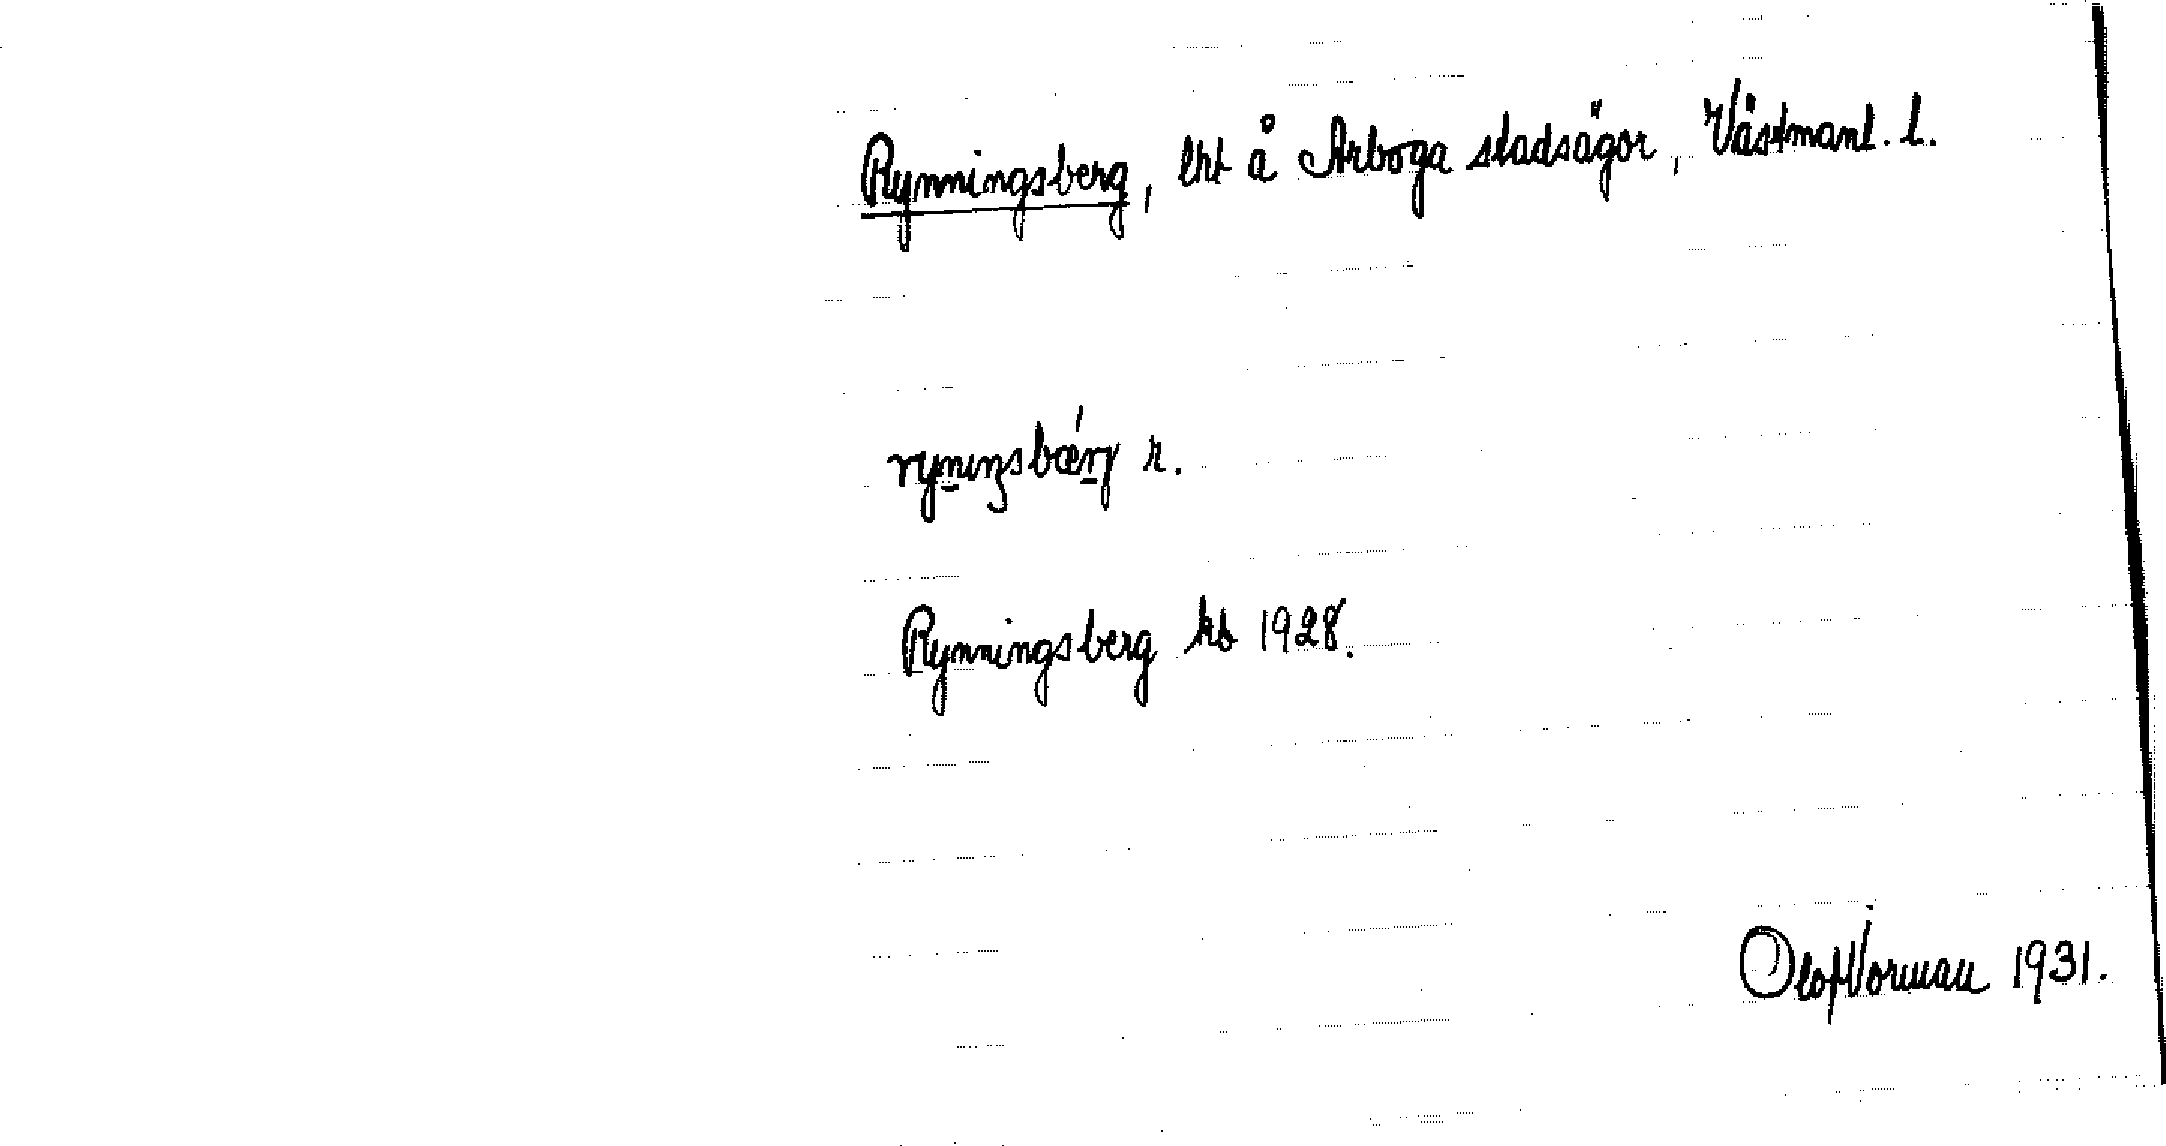 Rynningsberg, lht å Arboga stadsägor, Västmanl. l.
ryniŋsbǽrj r.
Rynningsberg kb 1928.
Olof Vorman 1931.